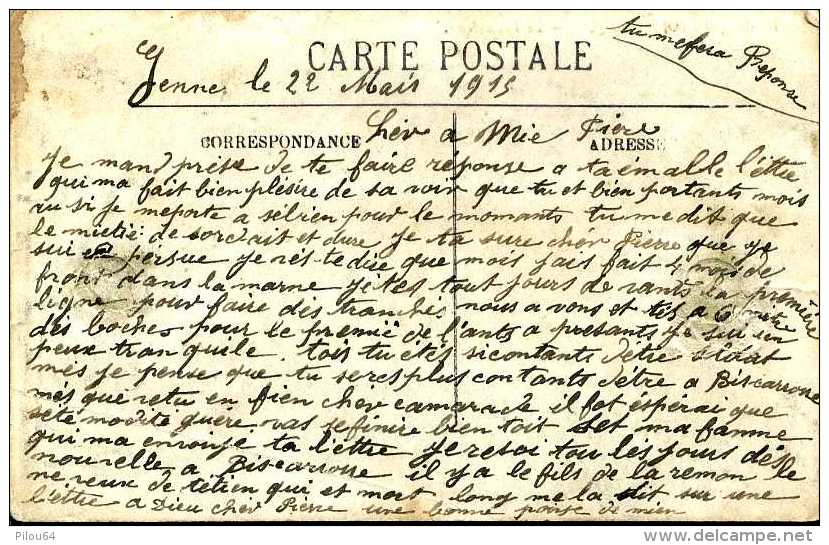 tu me fera Reponse
CARTE POSTALE
Jenne le 22 Mais 1915
CORRESPONDANCE
ADRESSE
Chér a Mie Piere
Je mand prése de te faire reponse a ta émalle l'éttre
qui ma fait bien plésire de sa voir que tu et bien portants mois
au si je me porte a sél rien pour le momants tu me dit que
le mietié de sordait et dure je ta sure chér Pierre que je
sui en persue je nés te dire que mois jais fait 4 mois de
front dans la marne jétés tout jours de vants la première
ligne pour faire dés tranchés nous a vons et tés a 6 metre
des boches pour le premié de l'ants a presants je sui un
peux tranquile tois tu étés si contants d'être soldat
més je pense que tu seres plus contants d'être a Biscarrosse
més que retu en fien cher camarade il fot espérai que
séte modité guére vas se finire bien toit set ma famme
qui ma envoyé ta l'éttre je resoi tou les jours dés
nouvelle a Biscarrosse il y a le fils de la remon le
ne veux de tétien qui et mort long me la dit sur une
l'éttre a Dieu cher Pierre une bonne poise de mien
Pilou64
www.delcampe.net